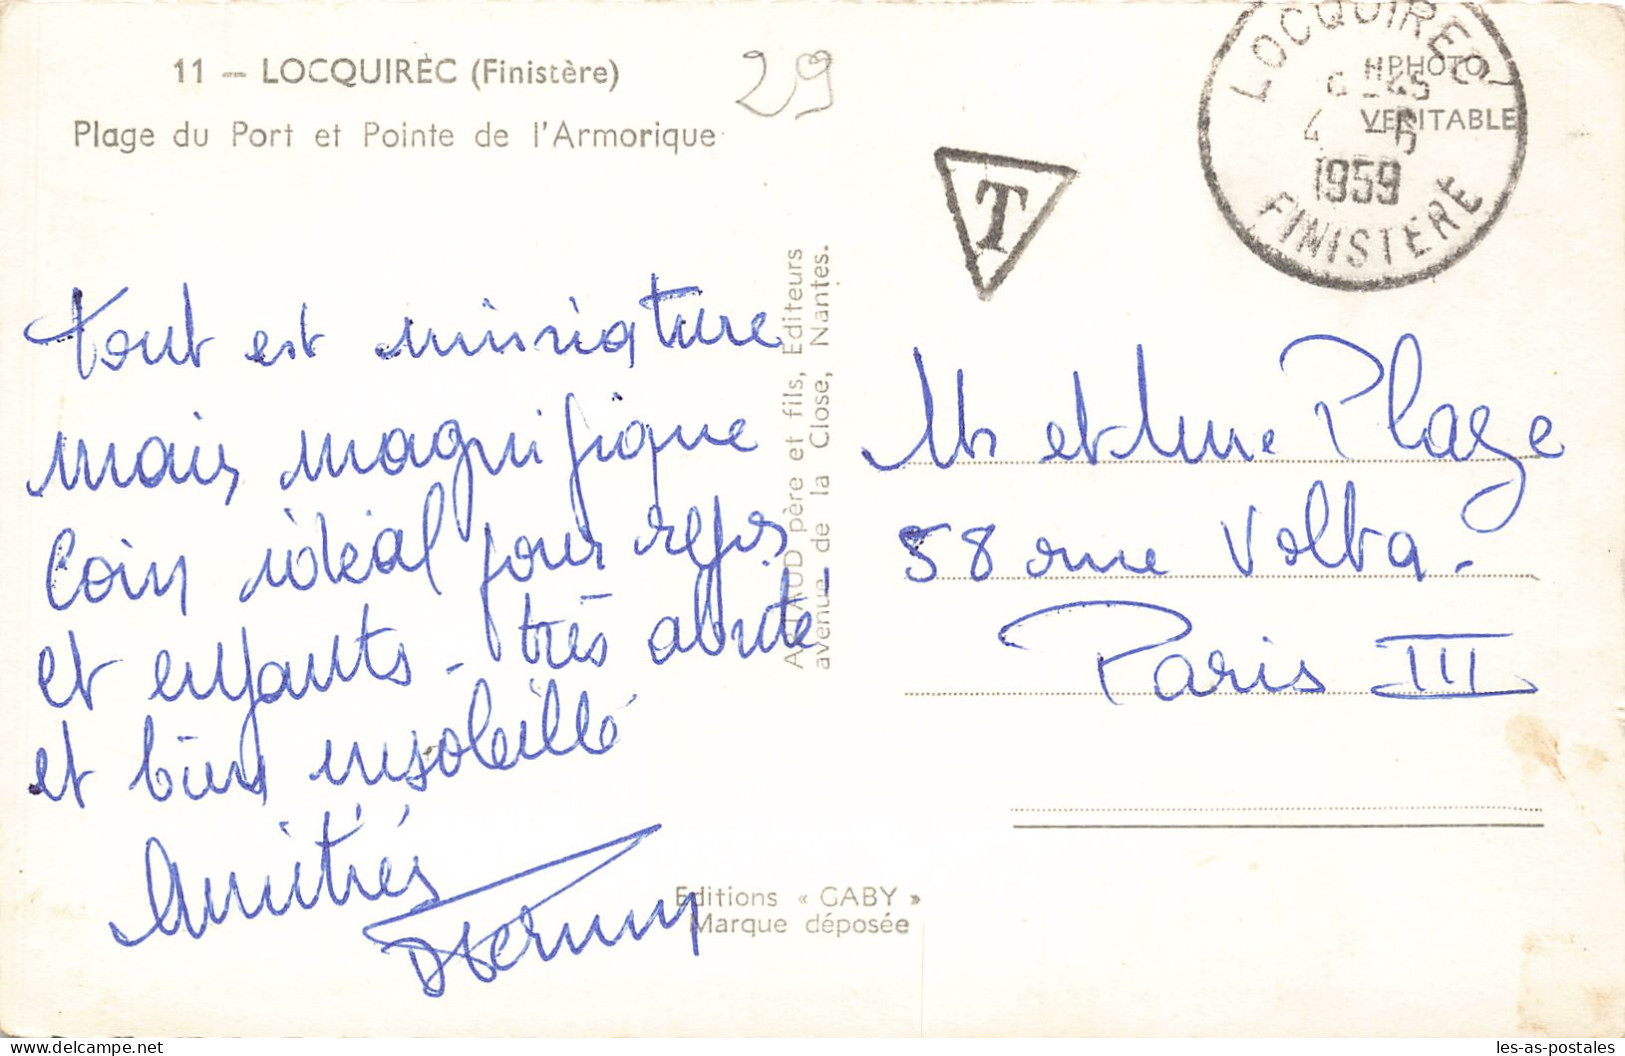 11 — LOCQUIREC (Finistère)
Plage du Port et Pointe de l'Armorique
29
LOCQUIREC
1959
FINISTERE
"PHOTO
VERITABLE
T
tout est miniature
mais magnifique
Coin idéal pour repos
et enfants - très abrité
et bien ensoleillé
Amitiés
ARTAUD père et fils, Editeurs
avenue de la Close, Nantes.
Mr et Mme Plage
58 rue Volta -
Paris III
Editions « GABY »
Marque déposée
les-as-postales